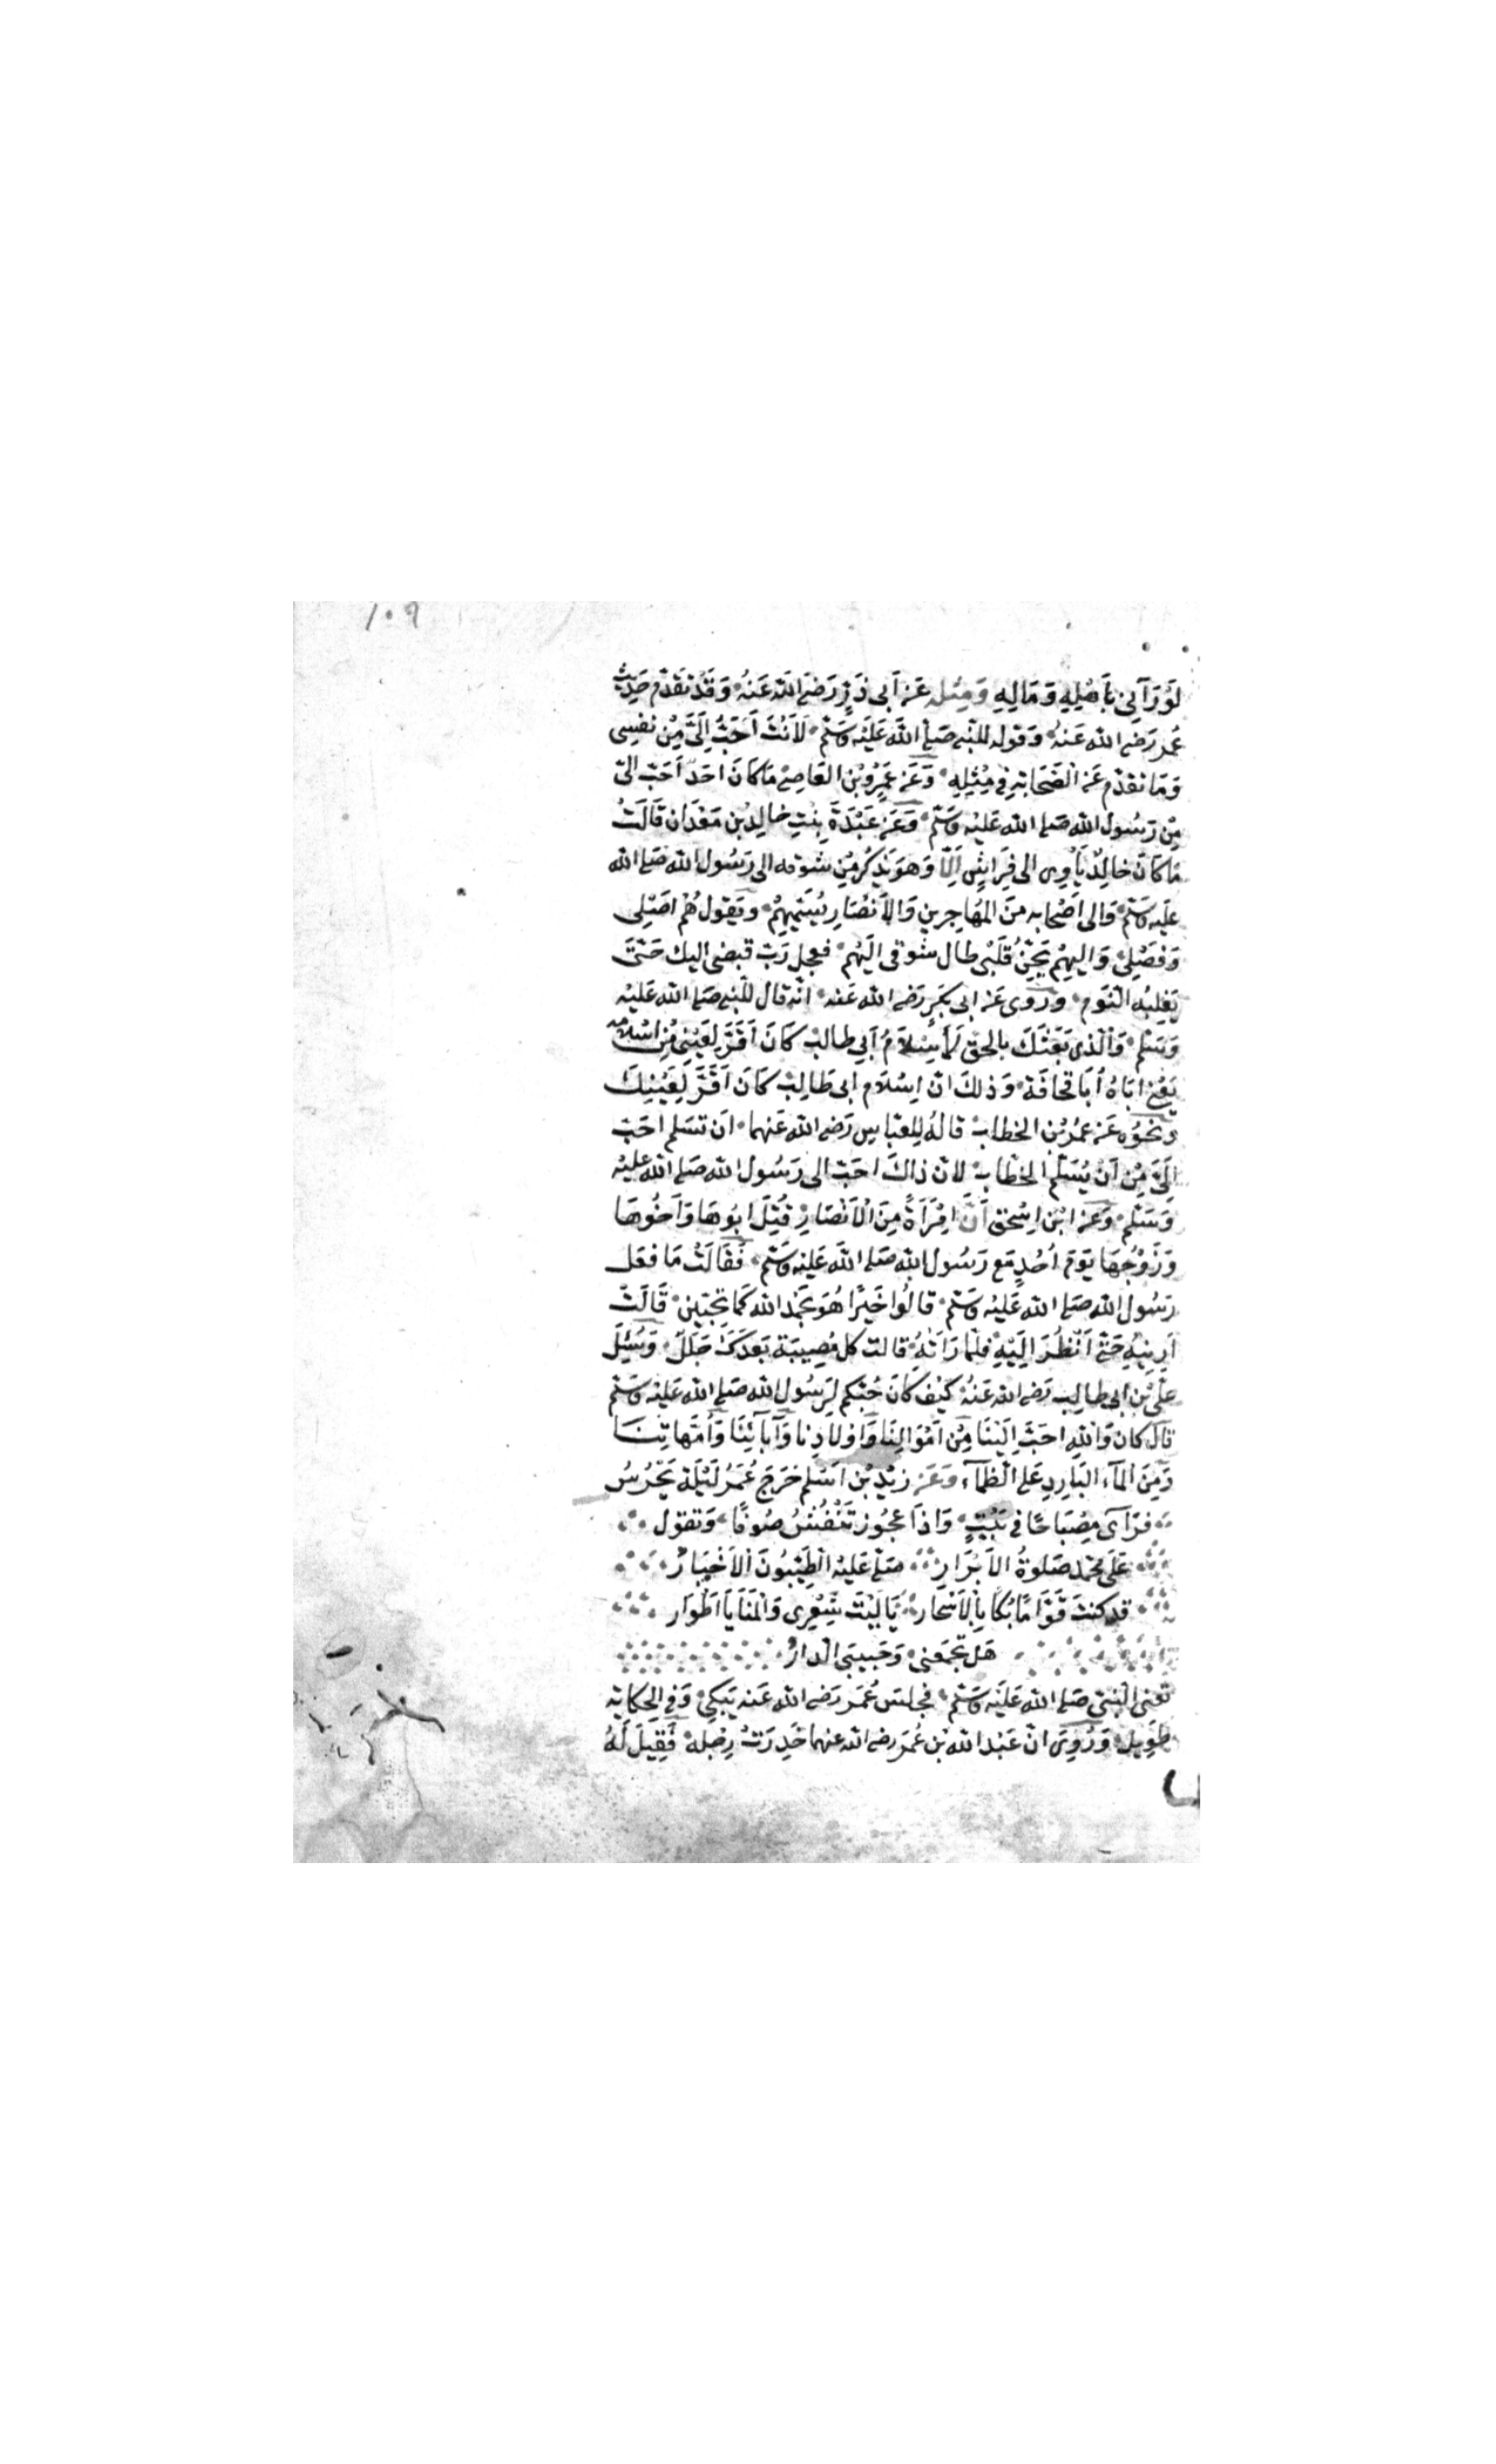 ١٠٩
لَوْ رَآنِى بِأَهْلِهِ وَمَالِهِ وَمِثْله عَنْ أَبى ذَرٍّ رَضِىَ اللّٰه عَنْهُ وَقَدْ تَقَدَّم حَدِيثُ
عُمر رَضِىَ اللّٰه عَنْهُ وَقوله للنَّبِى صَلَى اللّٰه عَلَيْه وَسَلَّم لَاَنْتَ اَحَبُّ اِلَىَّ مِنْ نَفْسِى
وَمَا تقدّم عَنِ الصَّحَابَةِ فِى مِثْلِهِ وَعَن عَمْرِو بْن العَاصِ مَا كَانَ اَحَدٌ اَحَبَّ الىَّ
مِنْ رَسُول اللّٰه صَلى اللّٰه عَلَيْه وَسَلَّم وَعَنْ عَبْدَةَ بِنْتِ خالِد بْن مَعْدَان قَالَتْ
مَا كَانَ خالِدٌ يَأوِى الى فِرَاشٍ اِلّا وَهوَ يَذكُر مِنْ شَوقه الى رَسُول اللّٰه صَلى اللّٰه
عَلَيه وَسَلَّم وَالى اَصْحَابه مِنَ المهَاجِرين وَالاَنْصَارِ يُسَمِّيهِمْ وَيَقول هُمْ اَصْلِى
وَفَصْلِى وَاليهِمْ يَحِنُّ قَلْبِى طال شَوْقى اليَهُم فعجل رَبِّ قبضى اليك حَتّى
يَغلبه النَّوم وَرُوِى عَن ابى بَكرٍ رَضى اللّٰه عَنه انّه قال للنَّبى صَلى اللّٰه عَلَيْه
وَسَلَّم وَالَّذى بَعَثَكَ بالحقِّ لَاِسْلَامُ اَبى طالبْ كَانَ اَقَرَّ لِعَيْنِى مِنْ اسْلامه
يَعْنى اَبَاهُ اَبَا قحَافَة وَذلكَ انّ اِسْلَام ابى طَالِبْ كَانَ اَقَرَّ لِعَيْنِكَ
وَنحوُه عَنْ عُمَرَ بْن الخطابْ قالهُ لِلعبّاسِ رَضى اللّٰه عَنهما اَن تسلم احَبّ
اِلَىَّ مِنْ اَنْ يُسْلَم الخطّابْ لانّ ذاكَ احَبّ الى رَسُول اللّٰه صَلى اللّٰه عليْه
وَسَلَّم وَعَنِ ابْن اِسْحٰق اَنَّ امْرَأَةً مِنَ الاَنْصَارِ قُتِلَ ابُوهَا وَاَخُوهَا
وَزَوْجُهَا يَوْم اُحُدٍ مَع رَسُول اللّٰه صَلى اللّٰه عَليْه وَسَلَّم فَقَالَتْ مَا فعَل
رَسُول اللّٰه صَلى اللّٰه عَلَيْه وَسَلَّم قالُوا خَيْرًا هُوَ بحَمْد اللّٰه كَما تُحبّين قَالَتْ
اَرِنِيهِ حَتّى اَنْظُرَ اِلَيْهِ فلمّا رَأَتْهُ قالت كل مُصِيبَة بَعدَكَ جَلَلٌ وَسُئِلَ
عَلِىّ بْن ابى طالِب رَضى اللّٰه عَنْهُ كَيْفَ كَانَ حُبّكم لِرَسُول اللّٰه صَلى اللّٰه عَليْه وَسَلَّم
قالَ كان وَاللّٰهِ احَبَّ اِلَيْنَا مِنْ اَمْوَالِنَا وَاَوْلَادِنا وَآبَآئِنَا وَاُمَّهاتِنَا
وَمِنَ المآء البَارِدِ عَلى الظمآء وَعَن زَيْد بْن اَسْلم خَرَجَ عُمَرُ لَيْلَة يَحْرُسُ
فرَأَى مِصْبَاحًا فى بَيْتٍ وَاذَا عجُوز تَنْفُشُ صُوفًا وَتقول
عَلَى محمّد صَلوةُ الاَبْرَارِ صَلّى عَلَيْه الطَّيِّبُونَ الاَخْيَارْ
قد كنتَ قَوَّامًا بُكا بِالاَسْحَار يَا لَيْتَ شِعْرِى وَالمَنَايَا اَطْوَار
هَلْ تجْمَعنى وَحَبيبى الْدارْ
تعنى النّبىّ صَلى اللّٰه عَلَيْه وَسَلَّم فجلسَ عُمَر رَضى اللّٰه عَنه يَبكِى وَفى الحِكايَة
طوِيل وَرُوِىَ انّ عَبْد اللّٰه بْن عُمَر رضى اللّٰه عنهما خَدِرَتْ رِجْله فَقِيلَ لَهُ